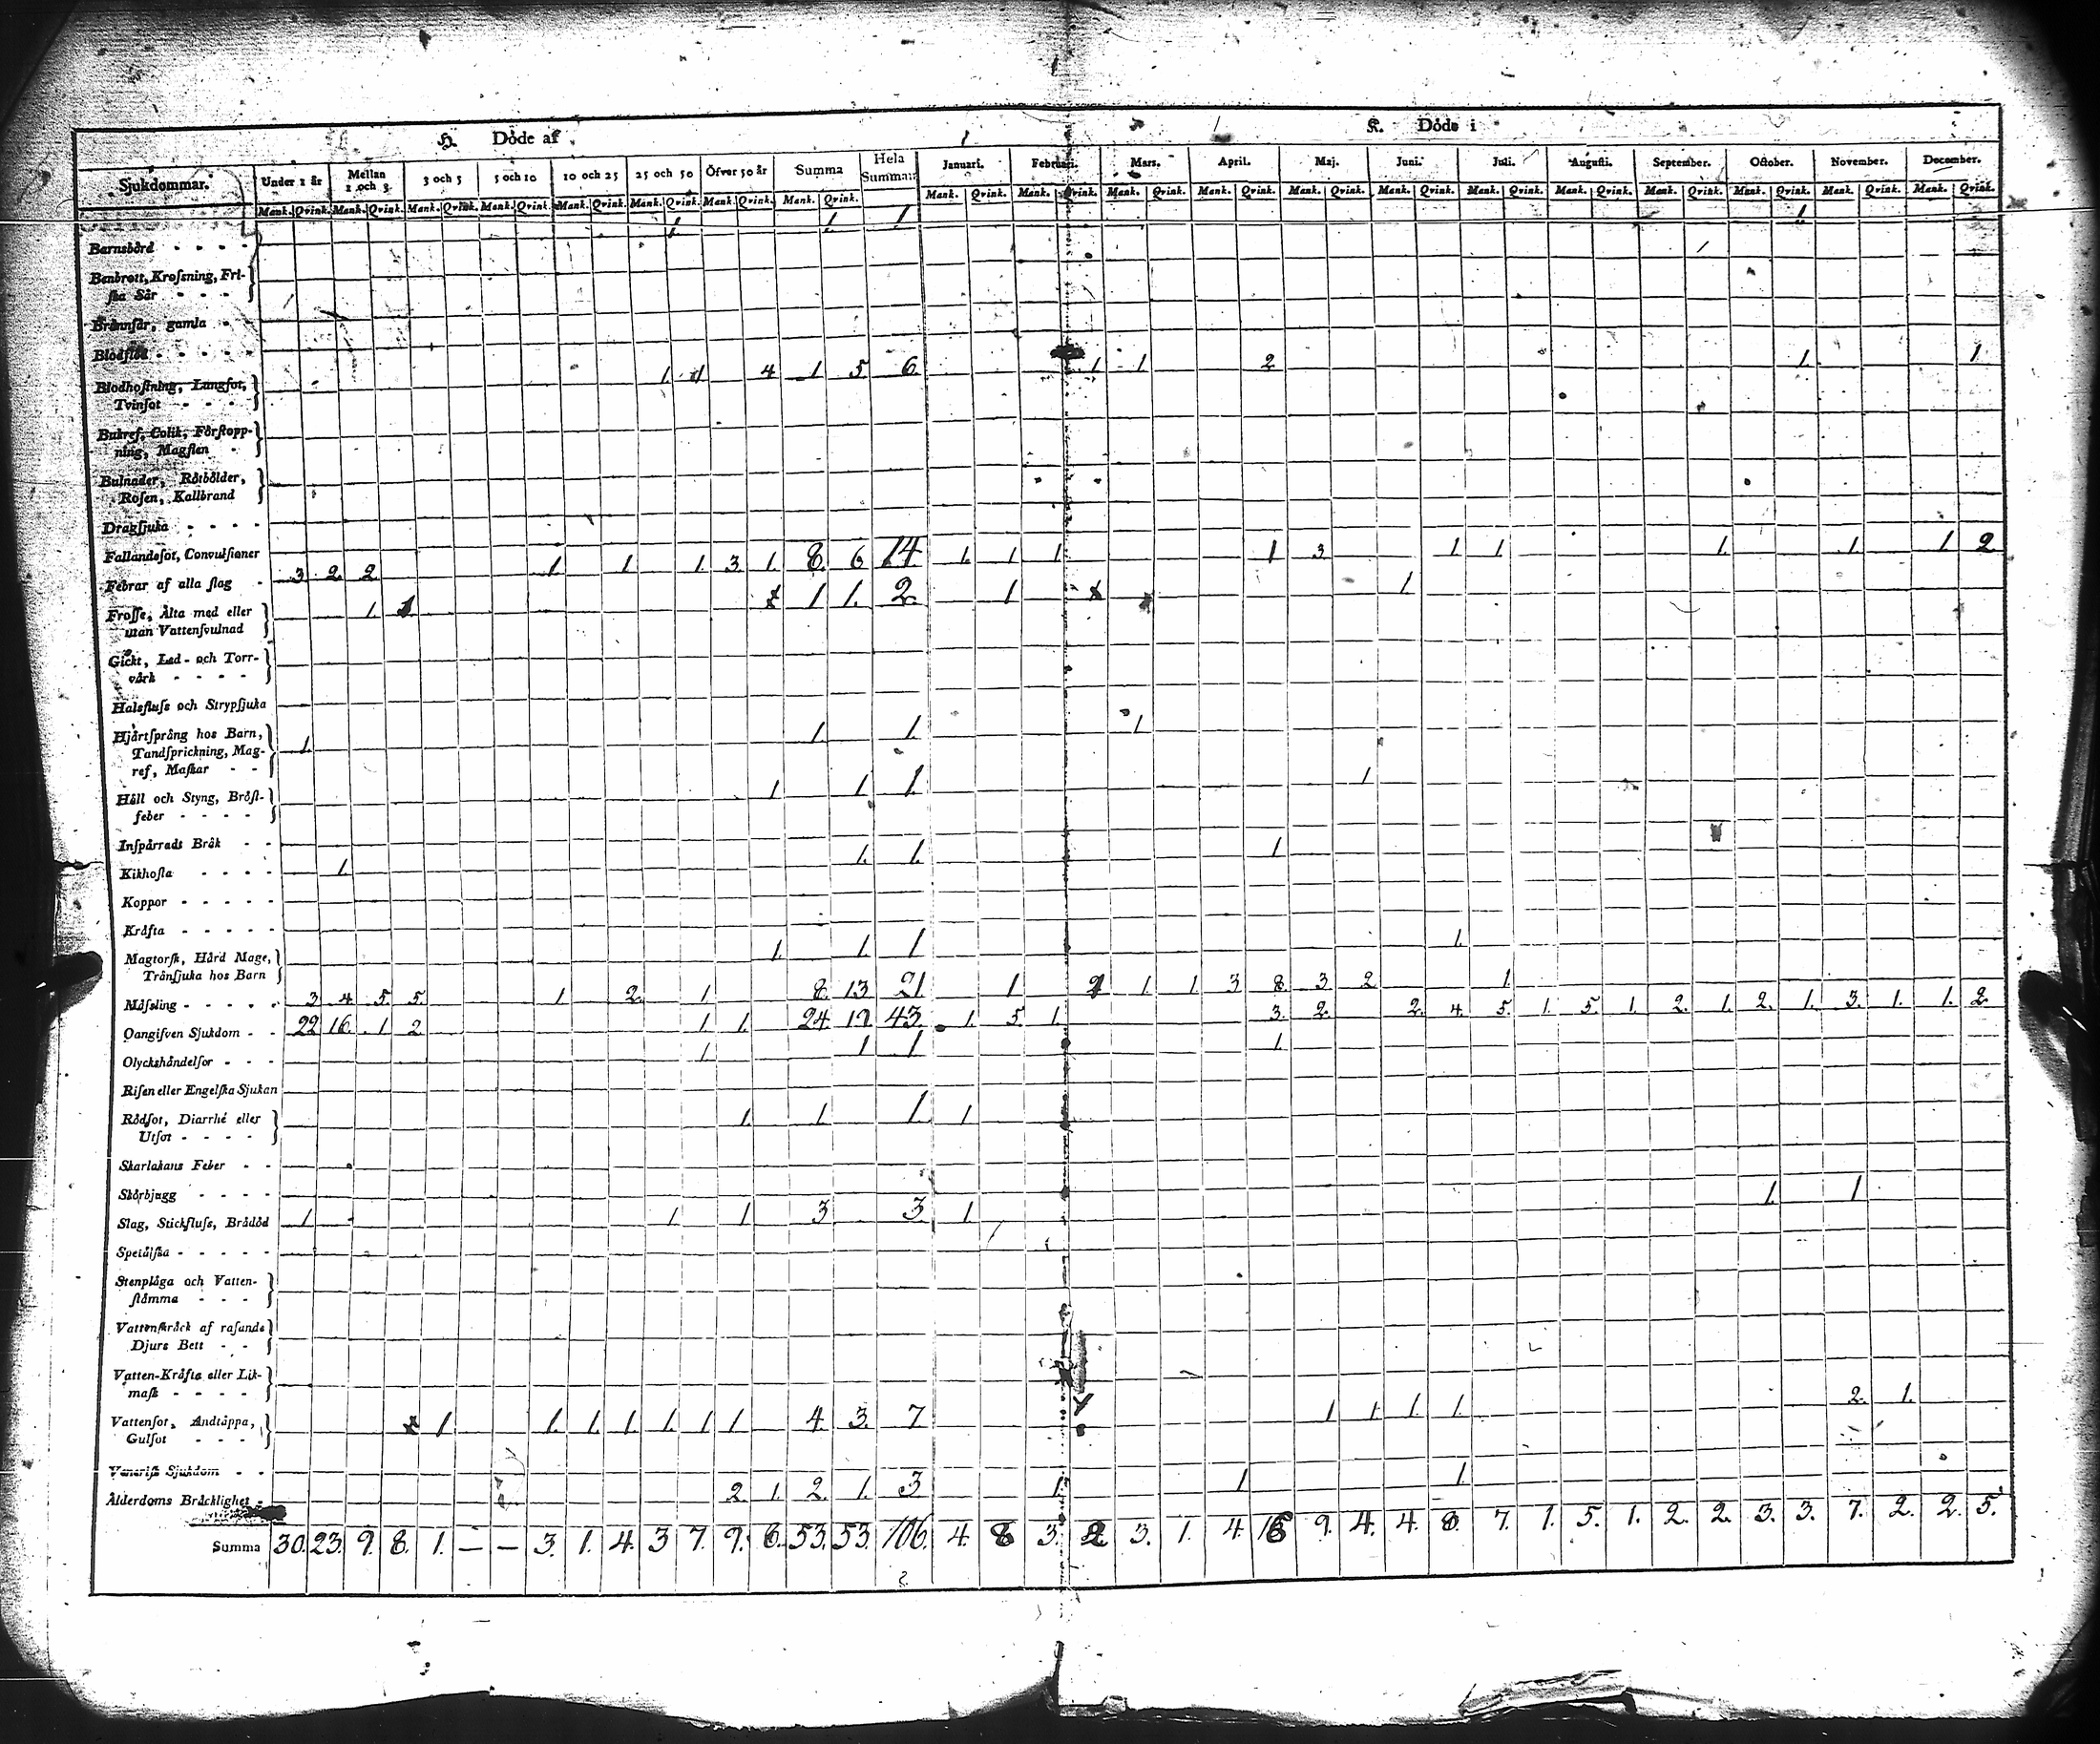 H. Döde af
K. Döde i
Sjukdommar. Under 1 år Mellan 1 och 3 3 och 5 5 och 10 10 och 25 25 och 50 Öfver 50 år Summa Hela Summan Januari. Februari. Mars. April. Maj. Juni. Juli. Augusti. September. October. November. December.
Mank. Qvink. Mank. Qvink. Mank. Qvink. Mank. Qvink. Mank. Qvink. Mank. Qvink. Mank. Qvink. Mank. Qvink. Mank. Qvink. Mank. Qvink. Mank. Qvink. Mank. Qvink. Mank. Qvink. Mank. Qvink. Mank. Qvink. Mank. Qvink. Mank. Qvink. Mank. Qvink. Mank. Qvink. Mank. Qvink.
Barnsbörd 1. 1. 1 1
Benbrott, Krosning, Fri-
ska Sår
Brännsår, gamla
Blodflöd
Blodhostning, Lungsot, 1. 1 4 1 5 6. 1 1 2 1. 1
Tvinsot
Bukref, Colik, Förstopp-
ning, Magsten
Bulnader, Rötbölder,
Rosen, Kallbrand
Dragsjuka
Fallandesot, Convulsioner
Febrar af alla slag 3 2. 2. 1 1 1 3. 1. 8. 6 14 1. 1 1 1 3. 1 1 1. 1 1 2
Frosse, Älta med eller 1. 1 1. 2. 1 1
utan Vattensvulnad
Gickt, Led- och Torr-
värk
Halsfluss och Strypsjuka
Hjärtsprång hos Barn, 1. 1. 1. 1
Tandsprickning, Mag-
ref, Maskar
Håll och Styng, Bröst- 1 1 1. 1
feber
Inspärradt Bråk
Kikhosta 1 1. 1. 1
Koppor
Kräfta
Magtorsk, Hård Mage, 1. 1. 1 1.
Trånsjuka hos Barn
Mässling 3 4 5. 5. 1 2. 1 8. 13 21. 1 1. 1. 3 8. 3 2 1.
Oangifven Sjukdom 22 16. 1 2 1 1. 24. 19 43. 1. 5. 1. 3. 2. 2. 4. 5. 1. 5. 1. 2. 1. 2. 1. 3. 1. 1. 2.
Olyckshändelser 1 1 1 1
Risen eller Engelska Sjukan
Rödsot, Diarrhé eller 1. 1 1 1
Utsot
Skarlakans Feber
Skörbjugg
Slag, Stickfluss, Brådöd 1 1 1 3 3 1. 1. 1
Spetälska
Stenplåga och Vatten-
stämma
Vattenskräck af rasande
Djurs Bett
Vatten-Kräfta eller Lik-
mask
Vattensot, Andtäppa, 1 1. 1. 1. 1. 1 1 4. 3. 7 1 1. 1 1. 2. 1.
Gulsot
Venerisk Sjukdom
Ålderdoms Bräcklighet 2. 1. 2. 1. 3 1. 1 1.
Summa 30. 23. 9. 8. 1. — — 3. 1. 4. 3 7. 9. 6. 53. 53. 106. 4. 8 3. 2. 3. 1. 4. 16 9. 4. 4. 8. 7. 1. 5. 1. 2. 2. 3. 3. 7. 2. 2. 5.